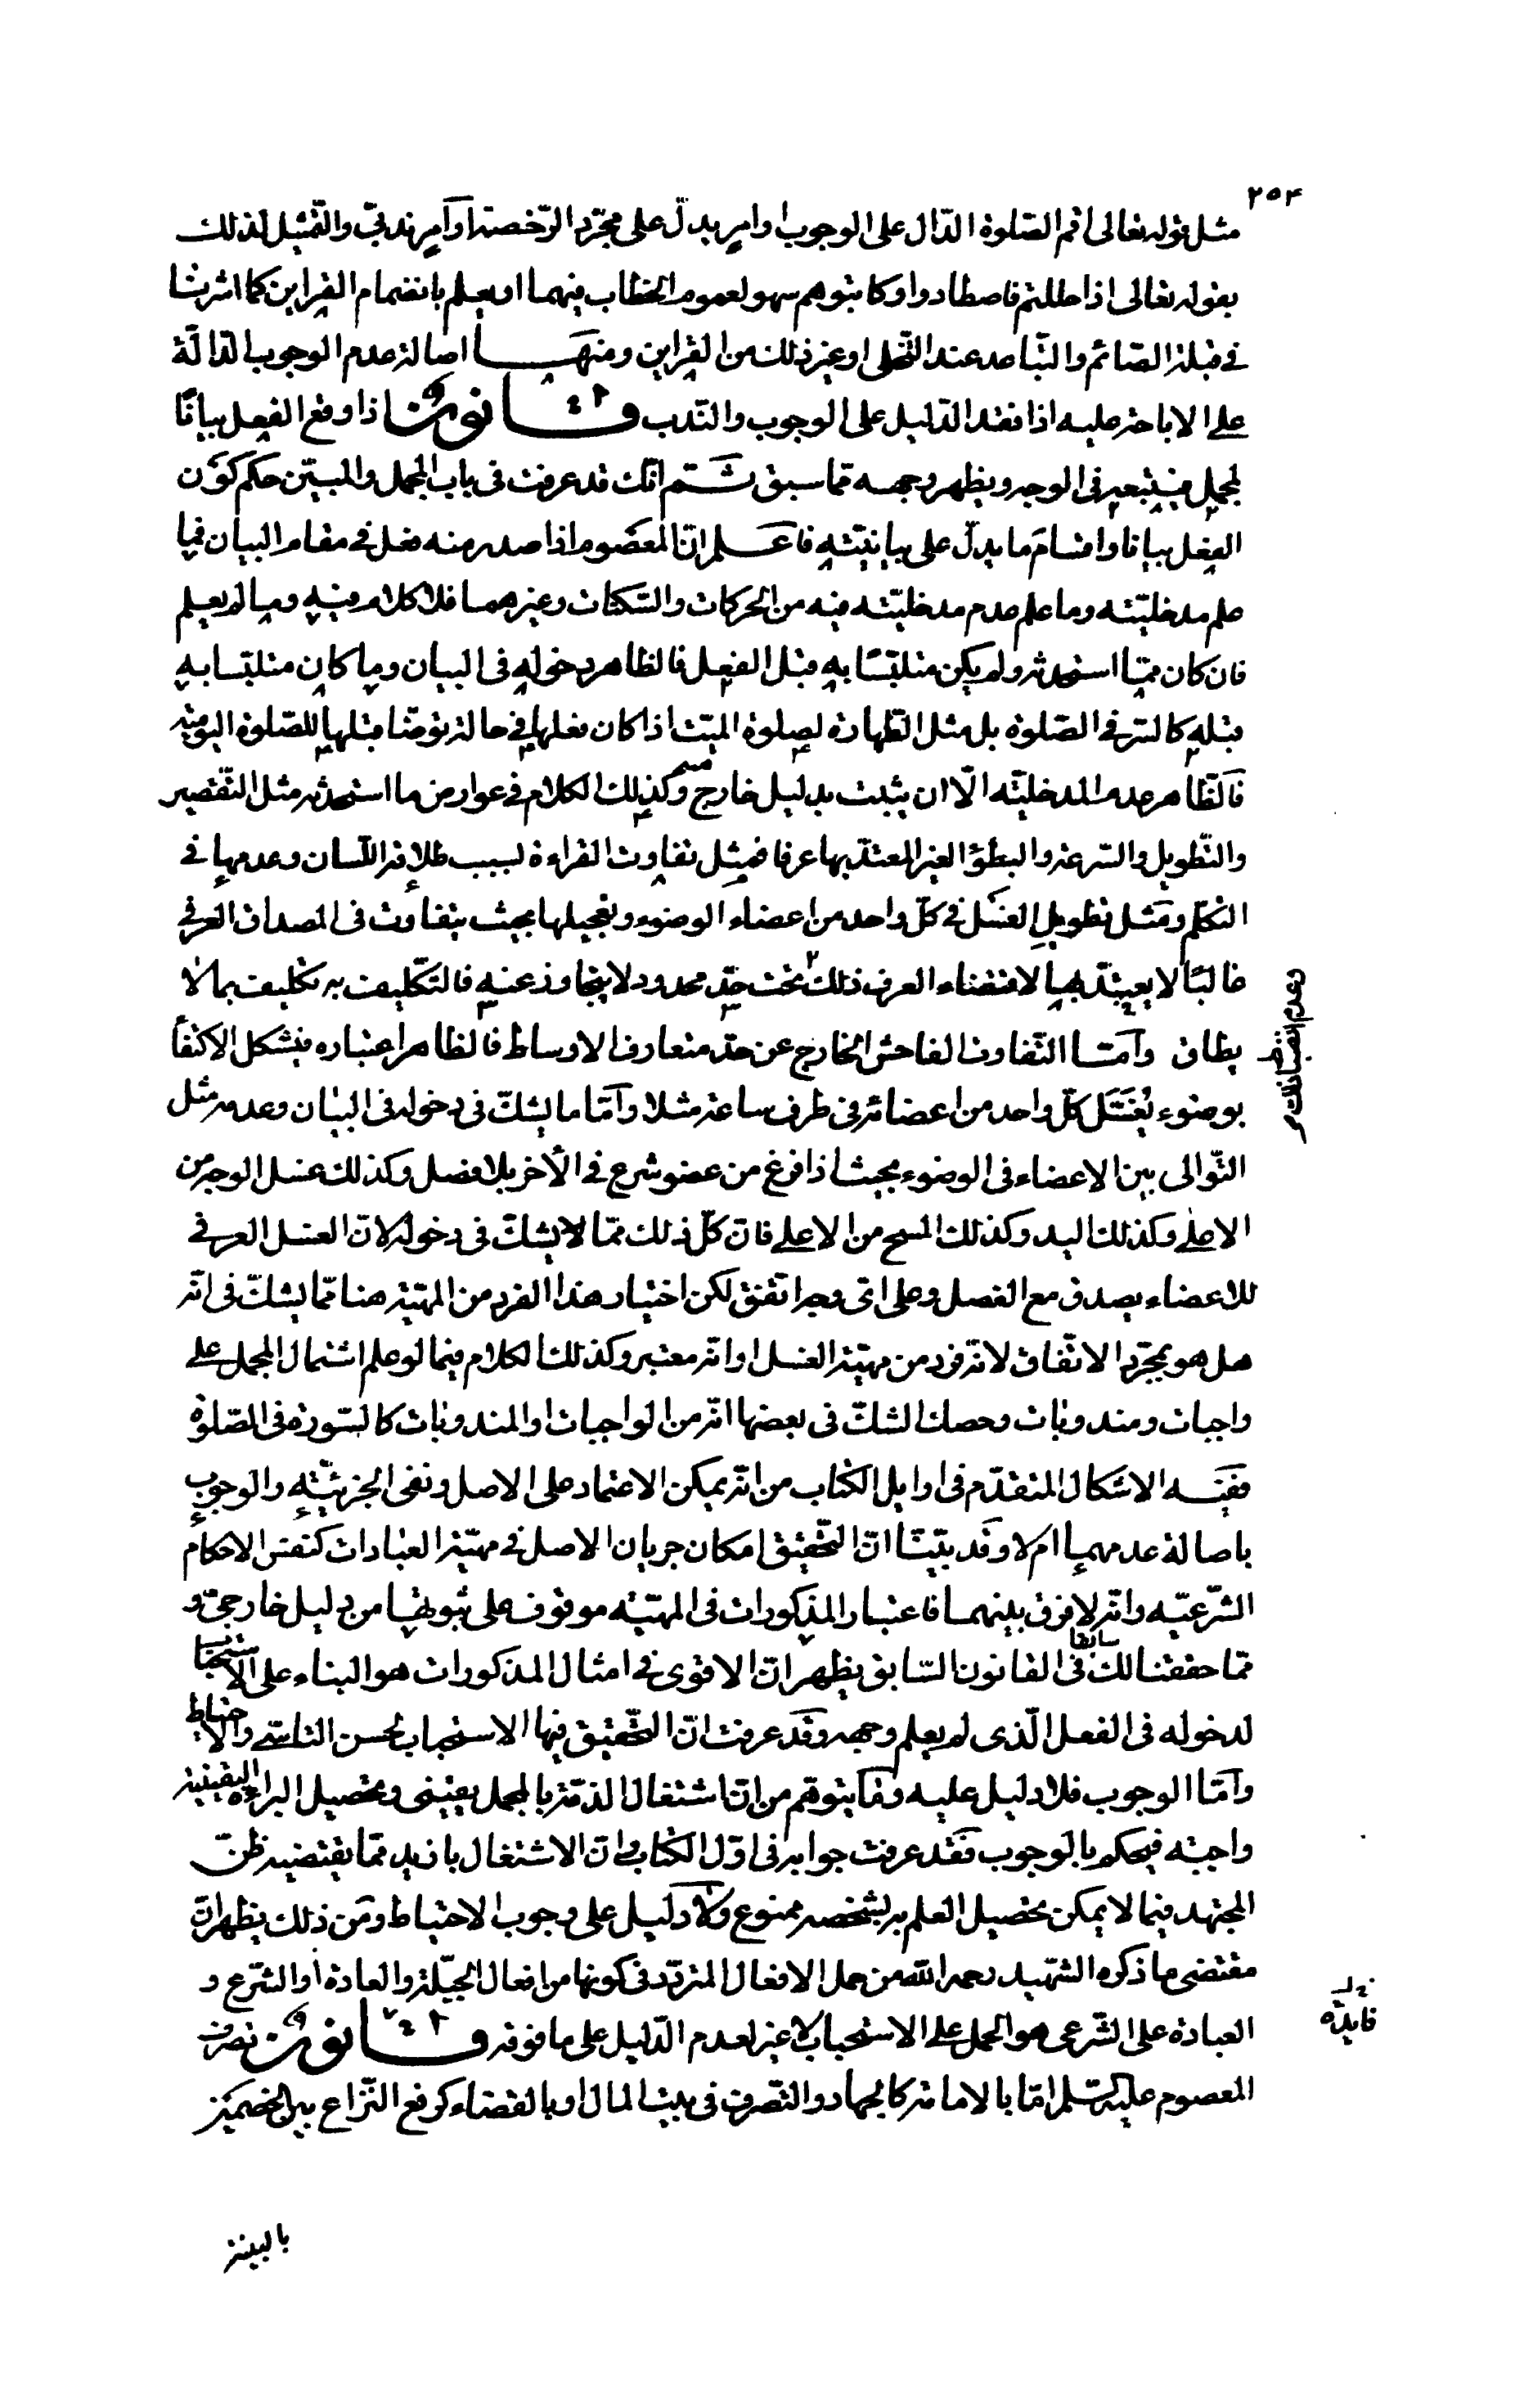 ٢٥٤
مثل قوله تعالى اقم الصّلوة الدّال على الوجوب او امرٍ يدلّ على مجرّد الرّخصة او امرٍ ندبيّ والتّمثيل لذلك
بقوله تعالى اذا حللتم فاصطادوا وكاتبوهم سهو لعموم الخطاب فيهما او يعلم بانضمام القراين كما اشرنا
فى قبلة الصّائم والتّباعد عند التّخلى او غير ذلك من القراين ومنها اصالة عدم الوجوب الدّالّة
على الاباحة عليه اذا فقد الدّليل على الوجوب والنّدب قانون اذا وقع الفعل بيانًا
لمجمل فيتبعه فى الوجه ويظهر وجهه ممّا سبق ثمّ انّك قد عرفت فى باب المجمل والمبيّن حكم كون
الفعل بيانا واقسام ما يدلّ على بيانيّته فاعلم انّ المعصوم اذا صدر منه فعل فى مقام البيان فما
علم مدخليّته وما علم عدم مدخليّته فيه من الحركات والسّكنات وغيرهما فلا كلام فيه وما لم يعلم
فان كان ممّا استحدثه ولم يكن متلبّسًا به قبل الفعل فالظاهر دخوله فى البيان وما كان متلبّسا به
قبله كالستر فى الصّلوة بل مثل الطّهارة لصلوة الميّت اذا كان فعلها فى حالة توضّا قبلها للصّلوة اليوميّة
فالظّاهر عدم المدخليّة الّا ان يثبت بدليل خارج وكذلك الكلام فى عوارض ما استحدثه مثل التّقصير
والتّطويل والسّرعة والبطؤ الغير المعتدّ بها عرفا فمثل تفاوت القراءة لسبب طلاقة اللّسان وعدمها فى
التكلّم ومثل تطويل الغسل فى كلّ واحد من اعضاء الوضوء وتعجيلها بحيث يتفاوت فى المصداق العرفى
غالبًا لا يعتدّ بها لاقتضاء العرف ذلك تحت حدّ محدود لا يتجاوز عنه فالتكليف به تكليف بما لا
وعدم انضباط ذلك
يطاق وامّا التّفاوت الفاحش الخارج عن حدّ متعارف الاوساط فالظاهر اعتباره فيشكل الاكتفا
بوضوء يُغسَل كلّ واحد من اعضائه فى ظرف ساعة مثلا وامّا ما يشكّ فى دخوله فى البيان وعدمه مثل
التّوالى بين الاعضاء فى الوضوء بحيث اذا فرغ من عضو شرع فى الآخر بلا فصل وكذلك غسل الوجه من
الاعلى وكذلك اليد وكذلك المسح من الاعلى فانّ كلّ ذلك ممّا لا يشكّ فى دخوله لانّ الغسل العرفى
للاعضاء يصدق مع الفصل وعلى اىّ وجه اتّفق لكن اختيار هذا الفرد من المهيّة هنا ممّا يشكّ فى انّه
هل هو بمجرّد الاتّفاق لانّه فرد من مهيّة الغسل او انّه معتبر وكذلك الكلام فيما لو علم اشتمال المجمل على
واجبات ومندوبات وحصل الشكّ فى بعضها انّه من الواجبات او المندوبات كالسّورة فى الصّلوة
ففيه الاشكال المتقدّم فى اوايل الكتاب من انّه يمكن الاعتماد على الاصل ونفى الجزئيّة والوجوب
باصالة عدمهما ام لا وقد بيّنّا انّ التّحقيق امكان جريان الاصل فى مهيّة العبادات كنفس الاحكام
الشّرعيّه وانّه لا فرق بينهما فاعتبار المذكورات فى المهيّه موقوف على ثبوتها من دليل خارجىّ و
ممّا حققنا لك سابقا فى القانون السّابق يظهر انّ الاقوى فى امثال المذكورات هو البناء على الاستحباب
لدخوله فى الفعل الّذى لم يعلم وجهه وقد عرفت انّ التّحقيق فيها الاستحباب لحسن التاسّى والاحتياط
وامّا الوجوب فلا دليل عليه وما يتوهّم من انّ اشتغال الذمّة بالمجمل يقينى وتحصيل البراءة اليقينيّة
واجبة فيحكم بالوجوب فقد عرفت جوابه فى اوّل الكتاب وانّ الاشتغال بازيد ممّا يقتضيه ظنّ
المجتهد فيما لا يمكن تحصيل العلم به لشخصه ممنوع ولا دليل على وجوب الاحتياط ومن ذلك يظهر انّ
مقتضى ما ذكره الشّهيد رحمه الله من حمل الافعال المتردّد فى كونها من افعال الجبلّة والعادة او الشّرع و
العبادة على الشّرعى هو الحمل على الاستحباب لا غير لعدم الدّليل على ما فوقه قانون تصرف
فايدة
المعصوم عليه السّلم امّا بالامامة كالجهاد والتّصرف فى بيت المال او بالقضاء كرفع النّزاع بين الخصمين
بالبينة